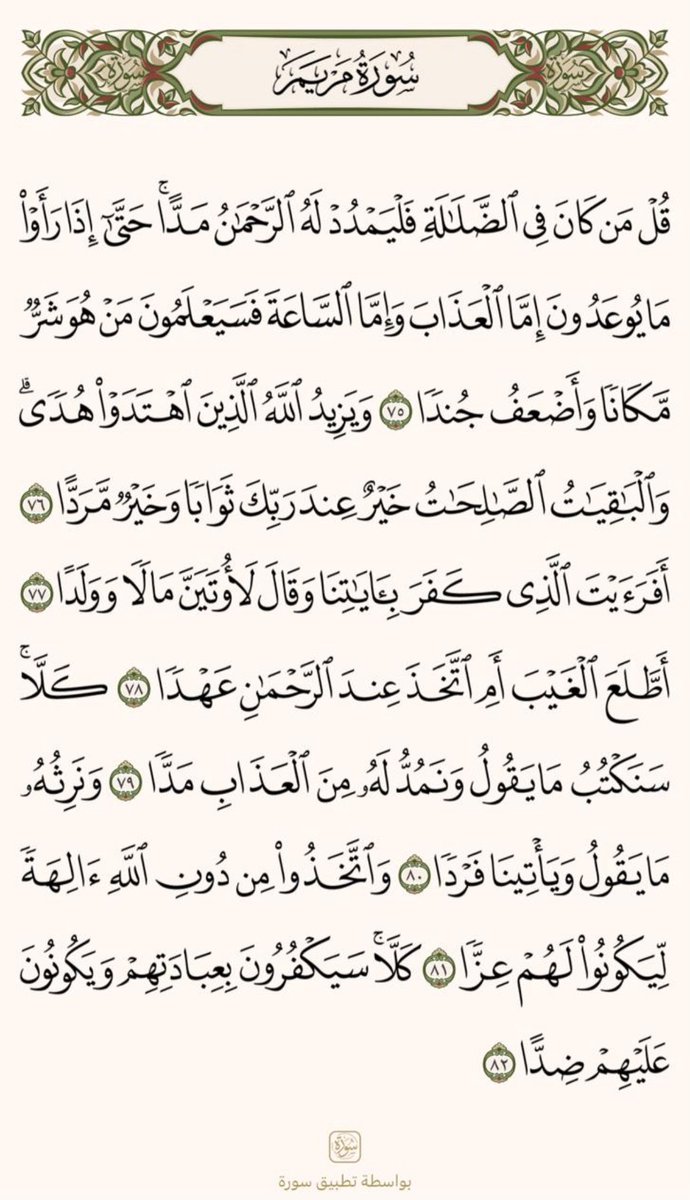 سُورَةُ مَرْيَمَ
قُلْ مَن كَانَ فِى ٱلضَّلَٰلَةِ فَلْيَمْدُدْ لَهُ ٱلرَّحْمَٰنُ مَدًّا ۚ حَتَّىٰٓ إِذَا رَأَوْا۟
مَا يُوعَدُونَ إِمَّا ٱلْعَذَابَ وَإِمَّا ٱلسَّاعَةَ فَسَيَعْلَمُونَ مَنْ هُوَ شَرٌّ
مَّكَانًا وَأَضْعَفُ جُندًا ٧٥ وَيَزِيدُ ٱللَّهُ ٱلَّذِينَ ٱهْتَدَوْا۟ هُدًى ۗ
وَٱلْبَٰقِيَٰتُ ٱلصَّٰلِحَٰتُ خَيْرٌ عِندَ رَبِّكَ ثَوَابًا وَخَيْرٌ مَّرَدًّا ٧٦
أَفَرَءَيْتَ ٱلَّذِى كَفَرَ بِـَٔايَٰتِنَا وَقَالَ لَأُوتَيَنَّ مَالًا وَوَلَدًا ٧٧
أَطَّلَعَ ٱلْغَيْبَ أَمِ ٱتَّخَذَ عِندَ ٱلرَّحْمَٰنِ عَهْدًا ٧٨ كَلَّا ۚ
سَنَكْتُبُ مَا يَقُولُ وَنَمُدُّ لَهُۥ مِنَ ٱلْعَذَابِ مَدًّا ٧٩ وَنَرِثُهُۥ
مَا يَقُولُ وَيَأْتِينَا فَرْدًا ٨٠ وَٱتَّخَذُوا۟ مِن دُونِ ٱللَّهِ ءَالِهَةً
لِّيَكُونُوا۟ لَهُمْ عِزًّا ٨١ كَلَّا ۚ سَيَكْفُرُونَ بِعِبَادَتِهِمْ وَيَكُونُونَ
عَلَيْهِمْ ضِدًّا ٨٢
سورة
بواسطة تطبيق سورة